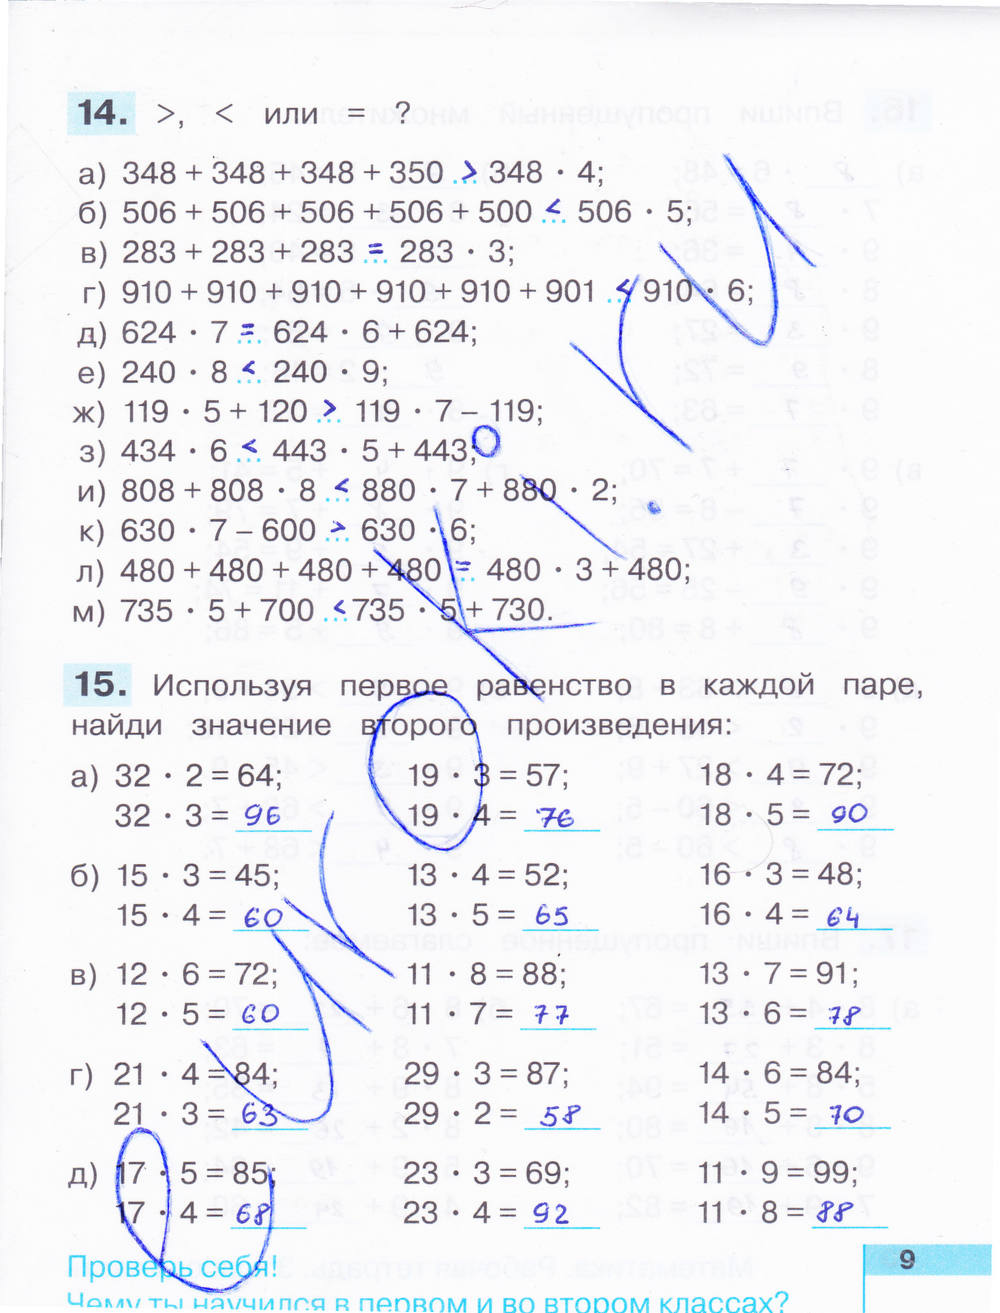 14. >, < или = ?
а) 348 + 348 + 348 + 350 > 348 · 4;
б) 506 + 506 + 506 + 506 + 500 < 506 · 5;
в) 283 + 283 + 283 = 283 · 3;
г) 910 + 910 + 910 + 910 + 910 + 901 < 910 · 6;
д) 624 · 7 = 624 · 6 + 624;
е) 240 · 8 < 240 · 9;
ж) 119 · 5 + 120 > 119 · 7 – 119;
з) 434 · 6 < 443 · 5 + 443;
и) 808 + 808 · 8 < 880 · 7 + 880 · 2;
к) 630 · 7 – 600 > 630 · 6;
л) 480 + 480 + 480 + 480 = 480 · 3 + 480;
м) 735 · 5 + 700 < 735 · 5 + 730.
15. Используя первое равенство в каждой паре,
найди значение второго произведения:
а) 32 · 2 = 64; 19 · 3 = 57; 18 · 4 = 72;
32 · 3 = 96 19 · 4 = 76 18 · 5 = 90
б) 15 · 3 = 45; 13 · 4 = 52; 16 · 3 = 48;
15 · 4 = 60 13 · 5 = 65 16 · 4 = 64
в) 12 · 6 = 72; 11 · 8 = 88; 13 · 7 = 91;
12 · 5 = 60 11 · 7 = 77 13 · 6 = 78
г) 21 · 4 = 84; 29 · 3 = 87; 14 · 6 = 84;
21 · 3 = 63 29 · 2 = 58 14 · 5 = 70
д) 17 · 5 = 85; 23 · 3 = 69; 11 · 9 = 99;
17 · 4 = 68 23 · 4 = 92 11 · 8 = 88
Проверь себя!
Чему ты научился в первом и во втором классах?
9